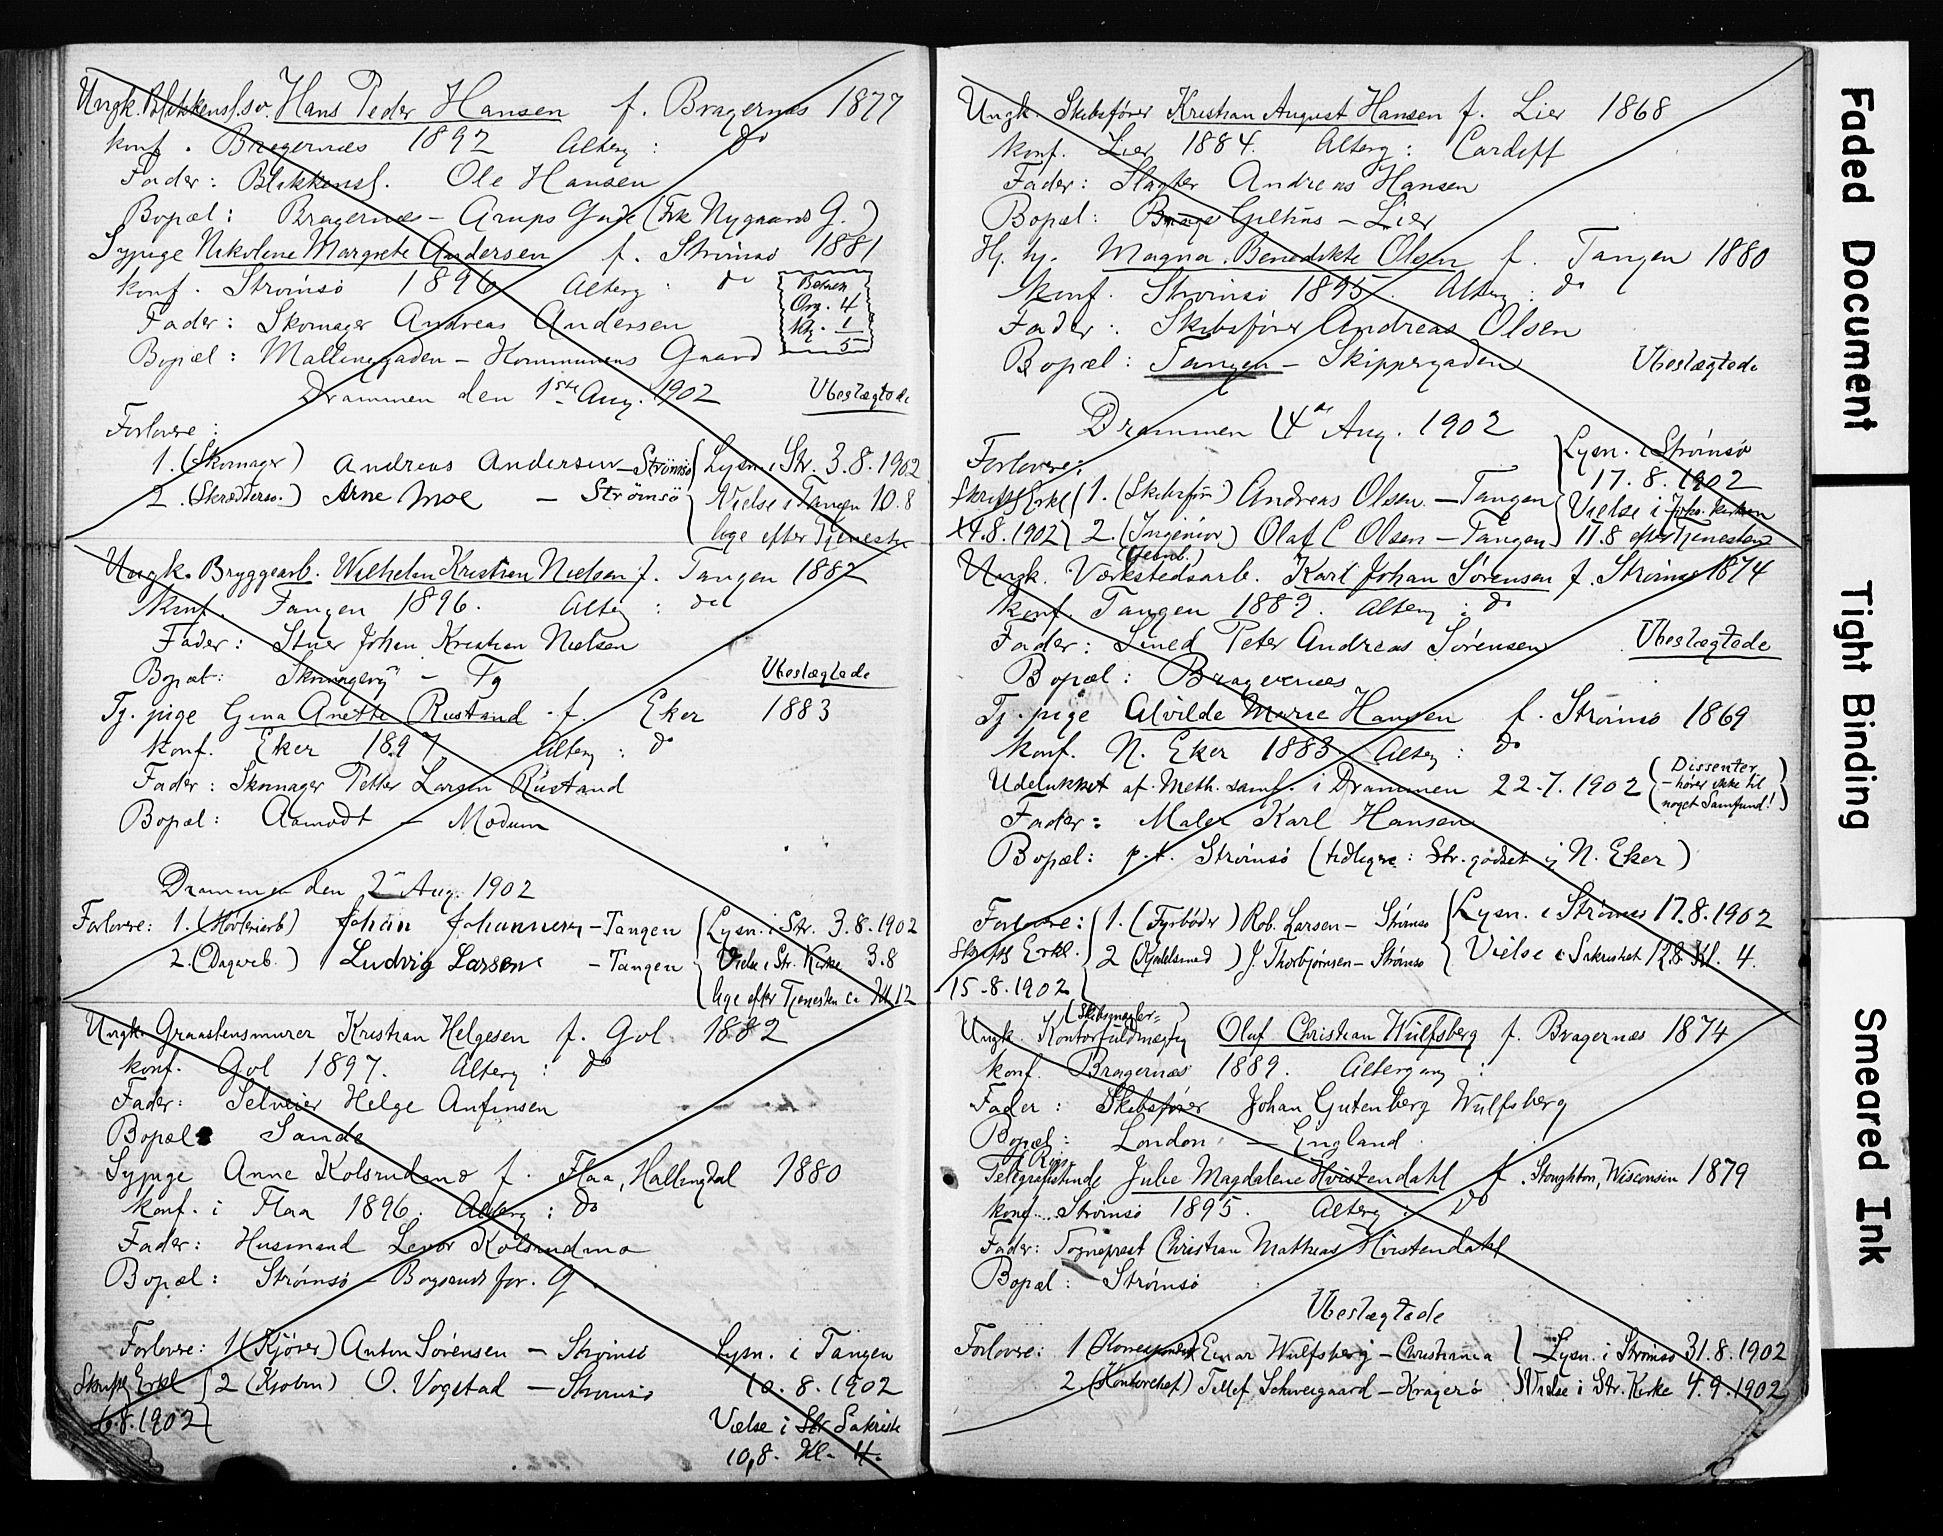 Ungk. Blikkensl.sv. Hans Peder Hansen f. Bragernæs 1877
konf. Bragernæs 1892 Alterg: do
Fader: Blikkensl. Ole Hansen
Bopæl: Bragernæs – Arups Gade (Frk Nygaards G.)
Sypige Nikoline Margrete Andersen f. Strømsø 1881
konf. Strømsø 1896 Alterg: do
Fader: Skomager Andreas Andersen
Bopæl: Mallinggaden – Kommunens Gaard
Org. 4
1
5
Drammen den 1ste Aug. 1902 Ubeslægtede
Forlovere:
1. (Skomager) Andreas Andersen – Strømsø
2. (Skræddersv.) Arne Moe – Strømsø
Lysn. i Str. 3.8.1902
Vielse i Tangen 10.8
lige efter Tjenesten
Ungk. Bryggearb. Wilhelm Kristian Nielsen f. Tangen 1882
konf. Tangen 1896. Alterg: do
Fader: Stuer Johan Kristian Nielsen
Bopæl: – Tg
Ubeslægtede
Tj. pige Gina Anette Rustand f. Eker 1883
konf. Eker 1897 Alterg: do
Fader: Skomager Petter Larsen Rustand
Bopæl: Aamodt – Modum
Drammen den 2den Aug. 1902
Forlovere: 1. Johan Johannesen – Tangen
2. (Dagarb.) Ludvig Larsen – Tangen
Lysn. i Str. 3.8.1902
Vielse i Str. Kirke 3.8
lige efter Tjenesten ca Kl 12
Ungk. Graastensmurer Kristian Helgesen f. Gol 1882
konf. Gol 1897. Alterg: do
Fader: Selveier Helge Anfinsen
Bopæl: Sande
Sypige Anne Kolsrudmo f. Flaa, Hallingdal 1880
konf. i Flaa 1896. Alterg: do
Fader: Husmand Levor Kolsrudmo
Bopæl: Strømsø – G.
Forlovere: 1 (Kjører) Anton Sørensen – Strømsø
Skriftl Erkl 2 O. Vogstad – Strømsø
6.8.1902
Lysn. i Tangen
10.8.1902
Vielse i Str Sakristi
10.8. Kl. 4.
Ungk. Skibsfører Kristian August Hansen f. Lier 1868
konf. Lier 1884. Alterg: Cardiff
Fader: Slagter Andreas Hansen
Bopæl: Gilhus – Lier
Hj. hj. Magna Benedikte Olsen f. Tangen 1880
konf. Strømsø 1895. Alterg: do
Fader: Skibsfører Andreas Olsen
Bopæl: Tangen – Skippergaden Ubeslægtede
Drammen 4de Aug. 1902
Forlovere:
Skriftl Erkl 1. (Skibsfør) Andreas Olsen – Tangen
14.8.1902 2. (Ingeniør) Olaf C Olsen – Tangen
Lysn. i Strømsø
17.8.1902
Vielse i kirken
17.8 efter Tjenesten
Ungk. Værkstedsarb. Karl Johan Sørensen f. Strømsø 1874
konf. Tangen 1889. Alterg: do
Fader: Smed Peter Andreas Sørensen Ubeslægtede
Bopæl: Bragernæs
Tj. pige Alvilde Marie Hansen f. Strømsø 1869
konf. N. Eker 1883 Alterg: do
Udelukket af Meth. samf. i Drammen 22-7.1902 (Dissenter
– hører ikke til
noget Samfund!)
Fader: Maler Karl Hansen
Bopæl: p.t. Strømsø (tidligere: Str. godset i N. Eker)
Forlovere: 1. (Fyrbøder) Rob. Larsen – Strømsø
Skriftl Erkl. 2 J. Thorbjørnsen – Strømsø
15-8.1902
Lysn. i Strømsø 17.8.1902
Vielse i Sakristiet Kl. 4.
(Skibsmægler=)
Ungk. Kontorfuldmægtig Oluf Christian Wulfsberg f. Bragernæs 1874
konf. Bragernæs 1889. Altergang:
Fader: Skibsfører Johan Gutenberg Wulfsberg
Bopæl: London – England
Telegrafistinde Julie Magdalene Hvistendahl f. Stoughton, Wisconsin 1879
konf. Strømsø 1895. Alterg: do
Fader: Sogneprest Christian Mathias Hvistendahl
Bopæl: Strømsø
Ubeslægtede
Forlovere: 1 Einar Wulfsberg – Christiania
2 (Kontorchef) Tellef Schweigaard – Kragerø
Lysn. i Strømsø 31.8.1902
Vielse i Str. Kirke 4.9.1902
Faded Document
Tight Binding
Smeared Ink